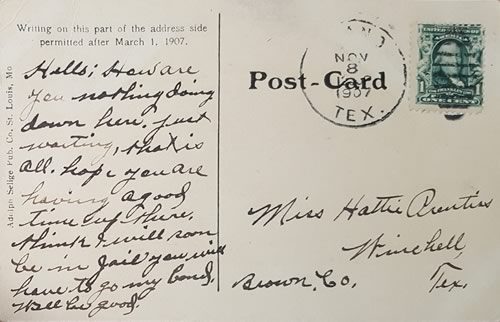 Writing on this part of the address side
permitted after March 1, 1907.
Hello; How are
you nothing doing
down here. just
waiting, that is
all. hope you are
having a good
time up there.
think I will soon
be in jail you will
have to go my bond.
Well be good.
Adolph Selige Pub. Co. St. Louis, Mo
Post-Card
NOV
8
1907
TEX.
1
ONE CENT
1
Miss Hattie Prentiss
Winchell,
Brown, Co. Tex.